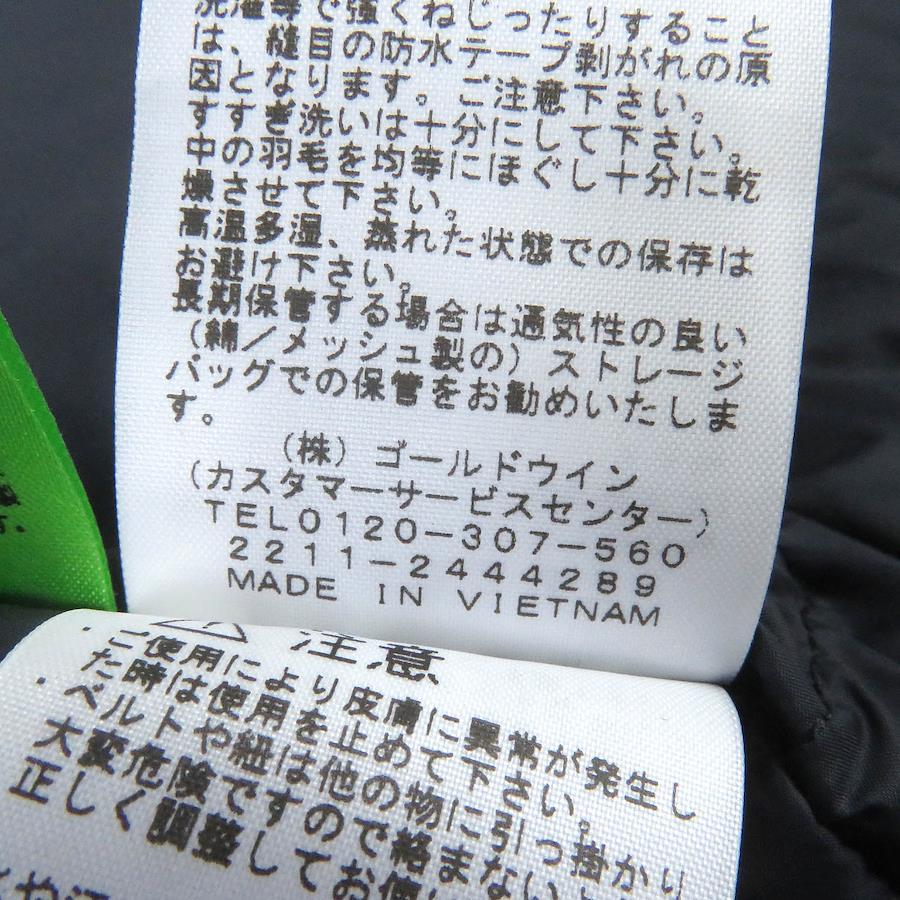 洗濯等で強くねじったりすること
は、縫い目の防水テープ剥がれの原
因となります。ご注意下さい。
すすぎ洗いは十分にして下さい。
中の羽毛を均等にほぐし十分に乾
燥させて下さい。
高温多湿、蒸れた状態での保存は
お避け下さい。
長期保管する場合は通気性の良い
(綿/メッシュ製の)ストレージ
バッグでの保管をお勧めいたしま
す。
(株)ゴールドウイン
(カスタマーサービスセンター)
TEL0120-307-560
2211-2444289
MADE IN VIETNAM
注意
・ご使用により皮膚に異常が発生し
た時は使用を止めて下さい。
・ベルトや紐は他の物に引っ掛かり
大変危険ですので絡まない
正しく調整してお使